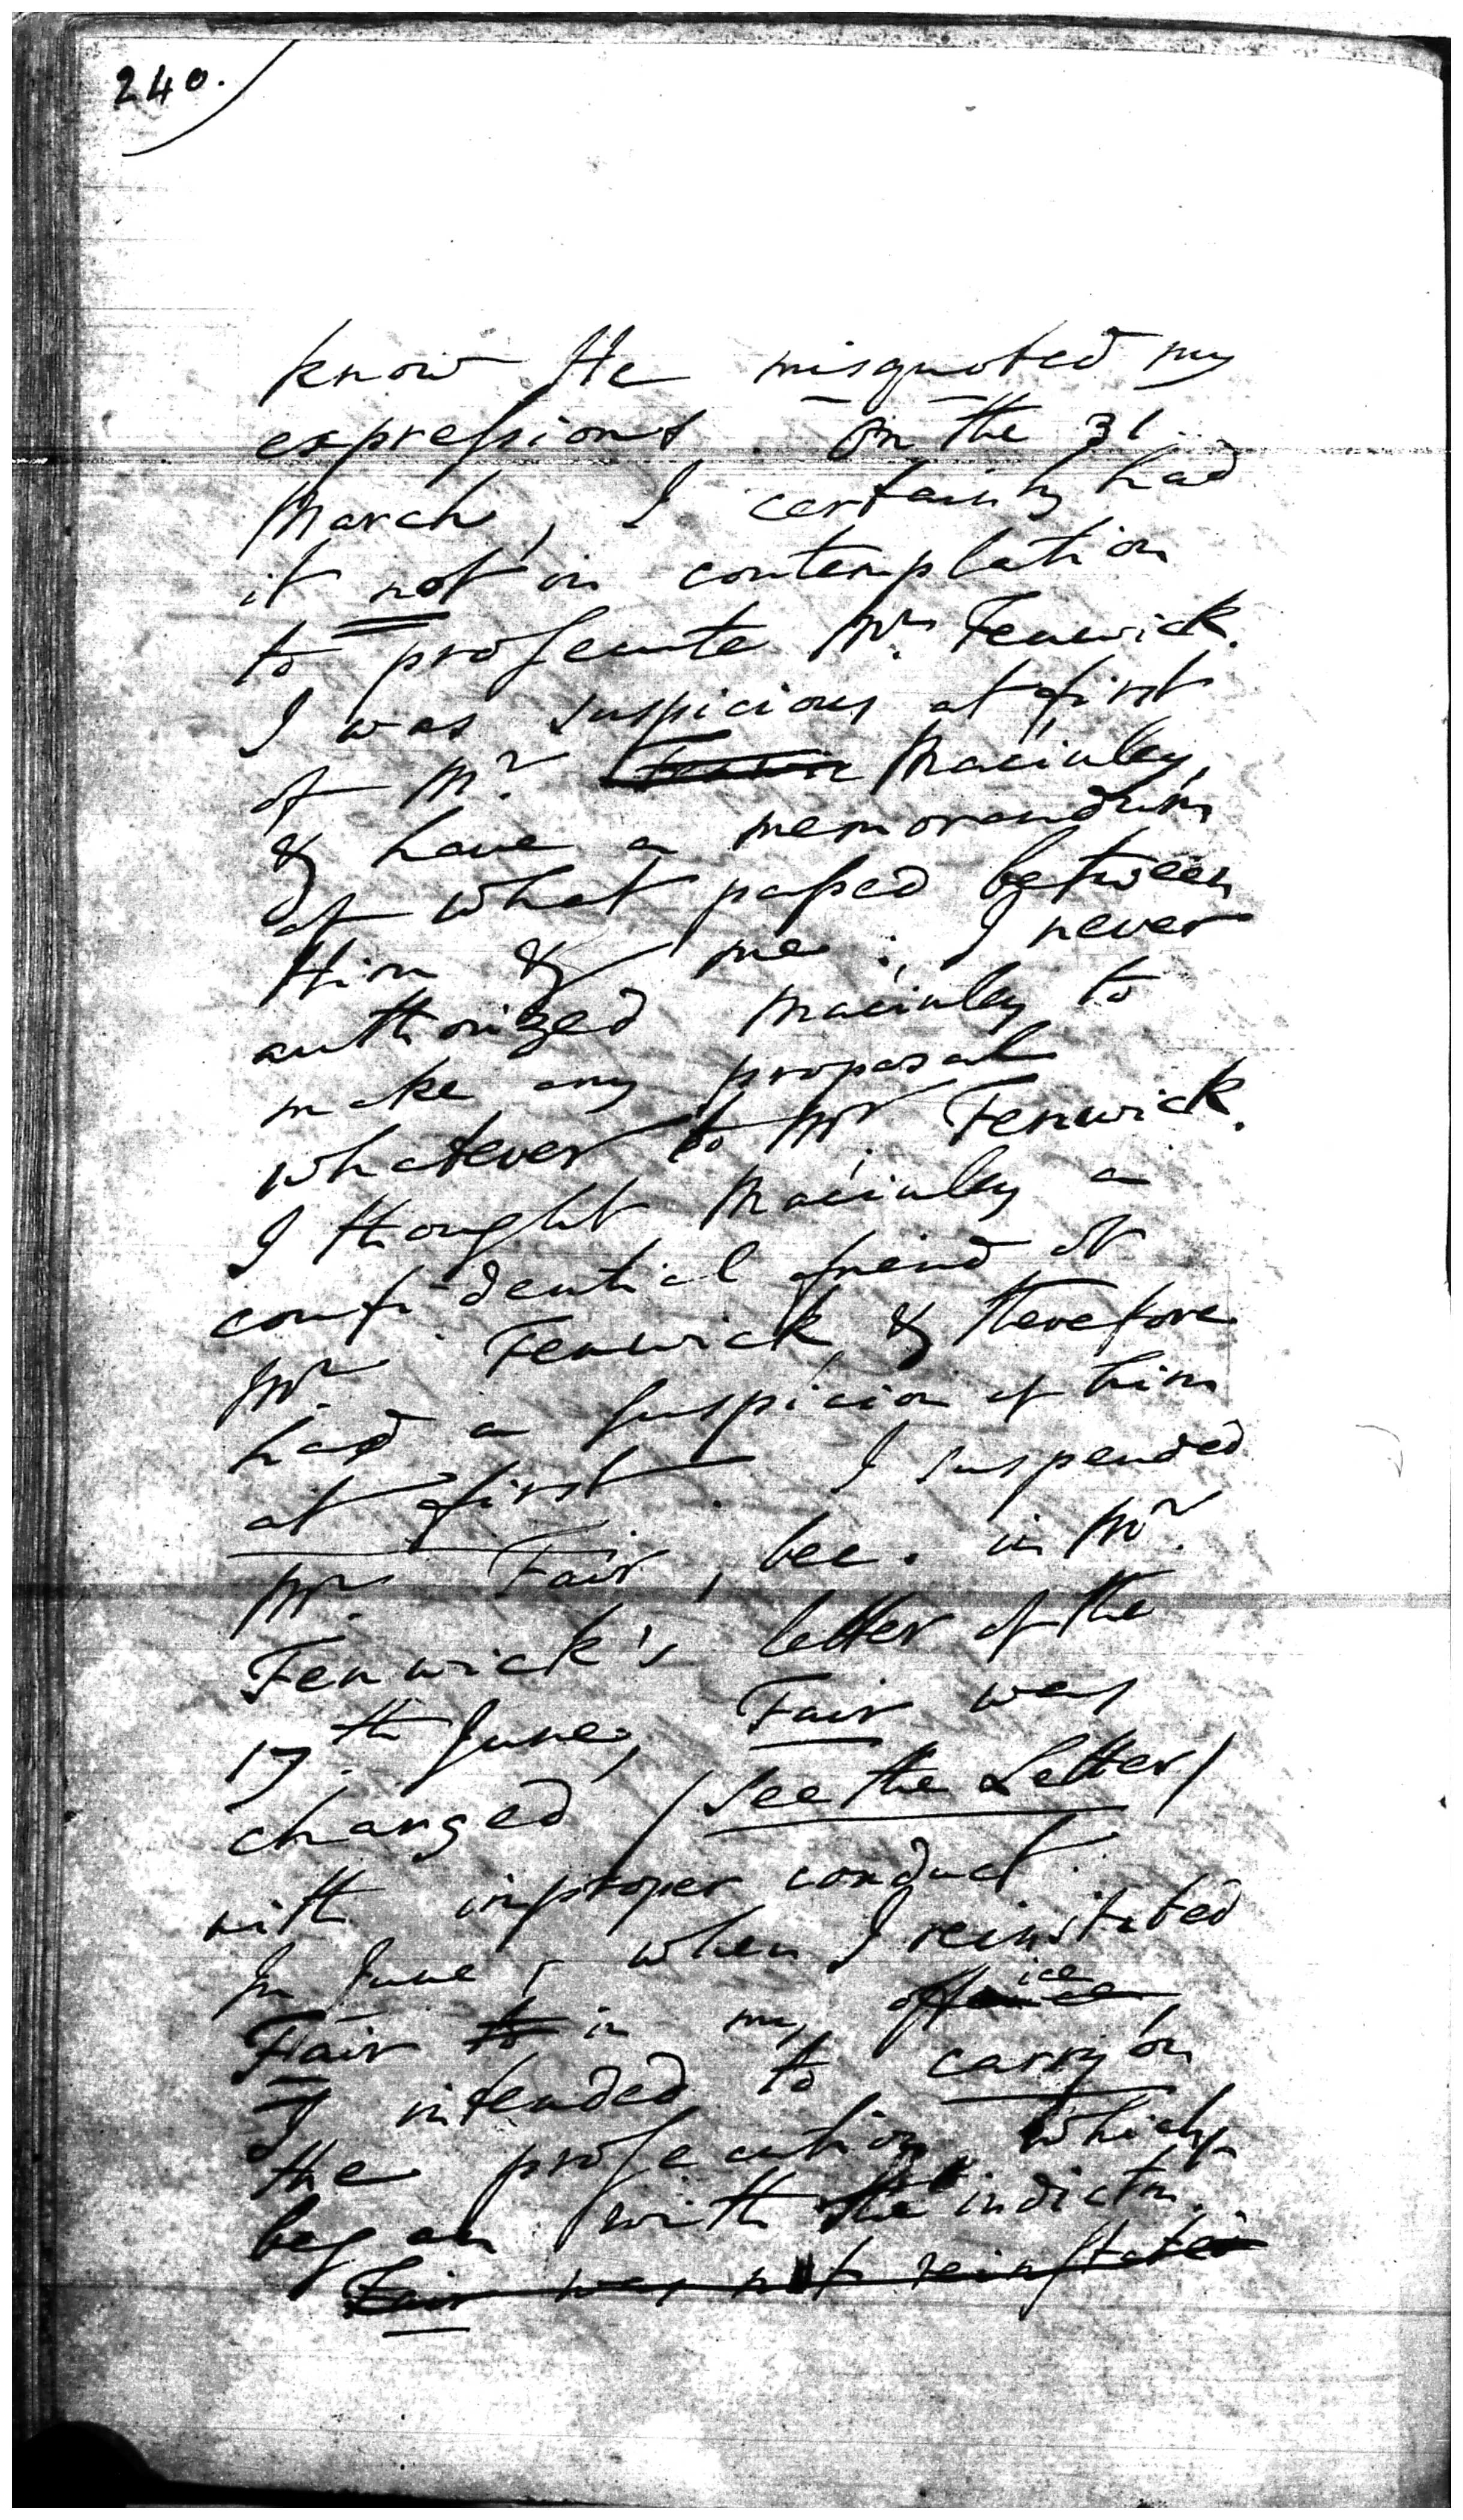 240.
know He misquoted my
expressions. On the 31
March, I certainly had
it not in contemplation
to prosecute Mr. Fenwick.
I was suspicious at first
of Mr. Macauley,
& have a memorandum
of what passed between
Him & me; I never
authorized Macauley to
make any proposal
whatever to Mr Fenwick.
I thought Macauley a
confidential friend of
Mr. Fenwick, & therefore
had a suspicion of him
at first. I suspended
Mr. Fair, bec. in Mr.
Fenwick's letter of the
17.th June, Fair was
charged (See the Letter)
with improper conduct.
In June, when I reinstated
Fair to in my office,
I intended to carry on
the prosecution, which
began with the indictm.
Fair was not reinstated